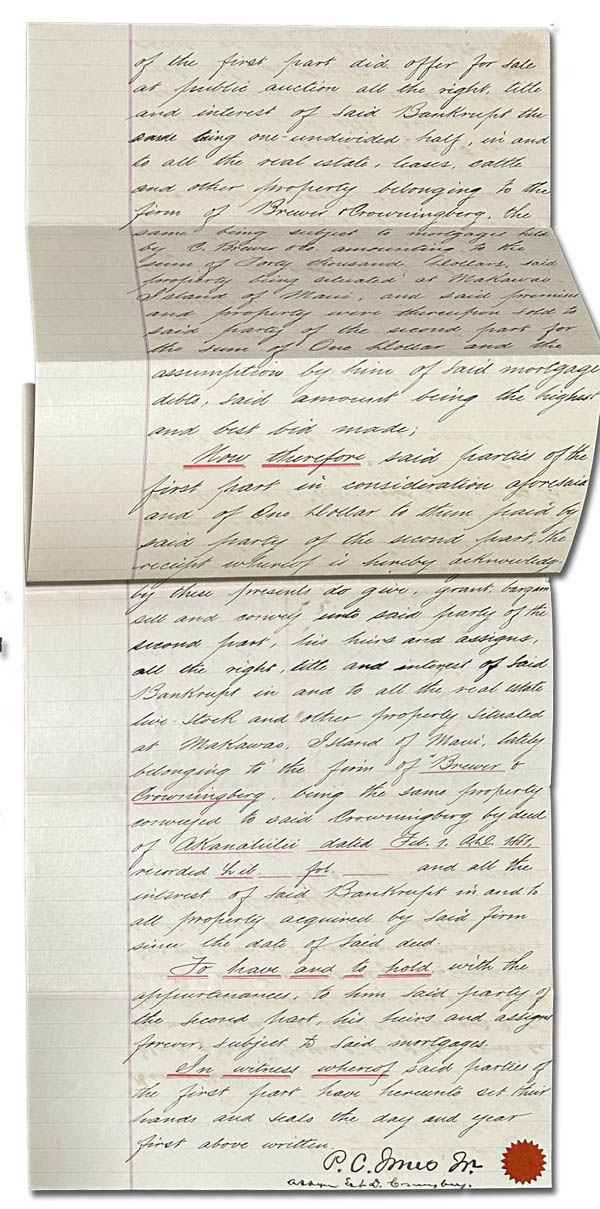 of the first part did offer for sale
at public auction all the right, title
and interest of said Bankrupt the
same being one-undivided-half, in and
to all the real estate, leases, cattle
and other property belonging to the
firm of Brewer & Crowningberg, the
same being subject to mortgages held
by C. Brewer & Co. amounting to the
sum of Forty thousand Dollars, said
property being situated at Makawao
Island of Maui, and said premises
and property were thereupon sold to
said party of the second part for
the sum of One Dollar and the
assumption by him of said mortgage
debts, said amount being the highest
and best bid made;
Now therefore said parties of the
first part in consideration aforesaid
and of One Dollar to them paid by
said party of the second part, the
receipt whereof is hereby acknowledg
by these presents do give, grant, bargain
sell and convey unto said party of the
second part, his heirs and assigns,
all the right, title and interest of said
Bankrupt in and to all the real estate
live-stock and other property situated
at Makawao, Island of Maui, lately
belonging to the firm of "Brewer &
Crowningberg, being the same property
conveyed to said Crowningberg by deed
of Akanaliilii dated Feb. 1. A.D.
recorded Lib. fol. and all the
interest of said Bankrupt in and to
all property acquired by said firm
since the date of said deed.
To have and to hold with the
appurtenances, to him said party of
the second part, his heirs and assigns
forever, subject to said mortgages.
In witness whereof said parties of
the first part have hereunto set their
hands and seals the day and year
first above written.
P. C. Jones Jr.
Est D.